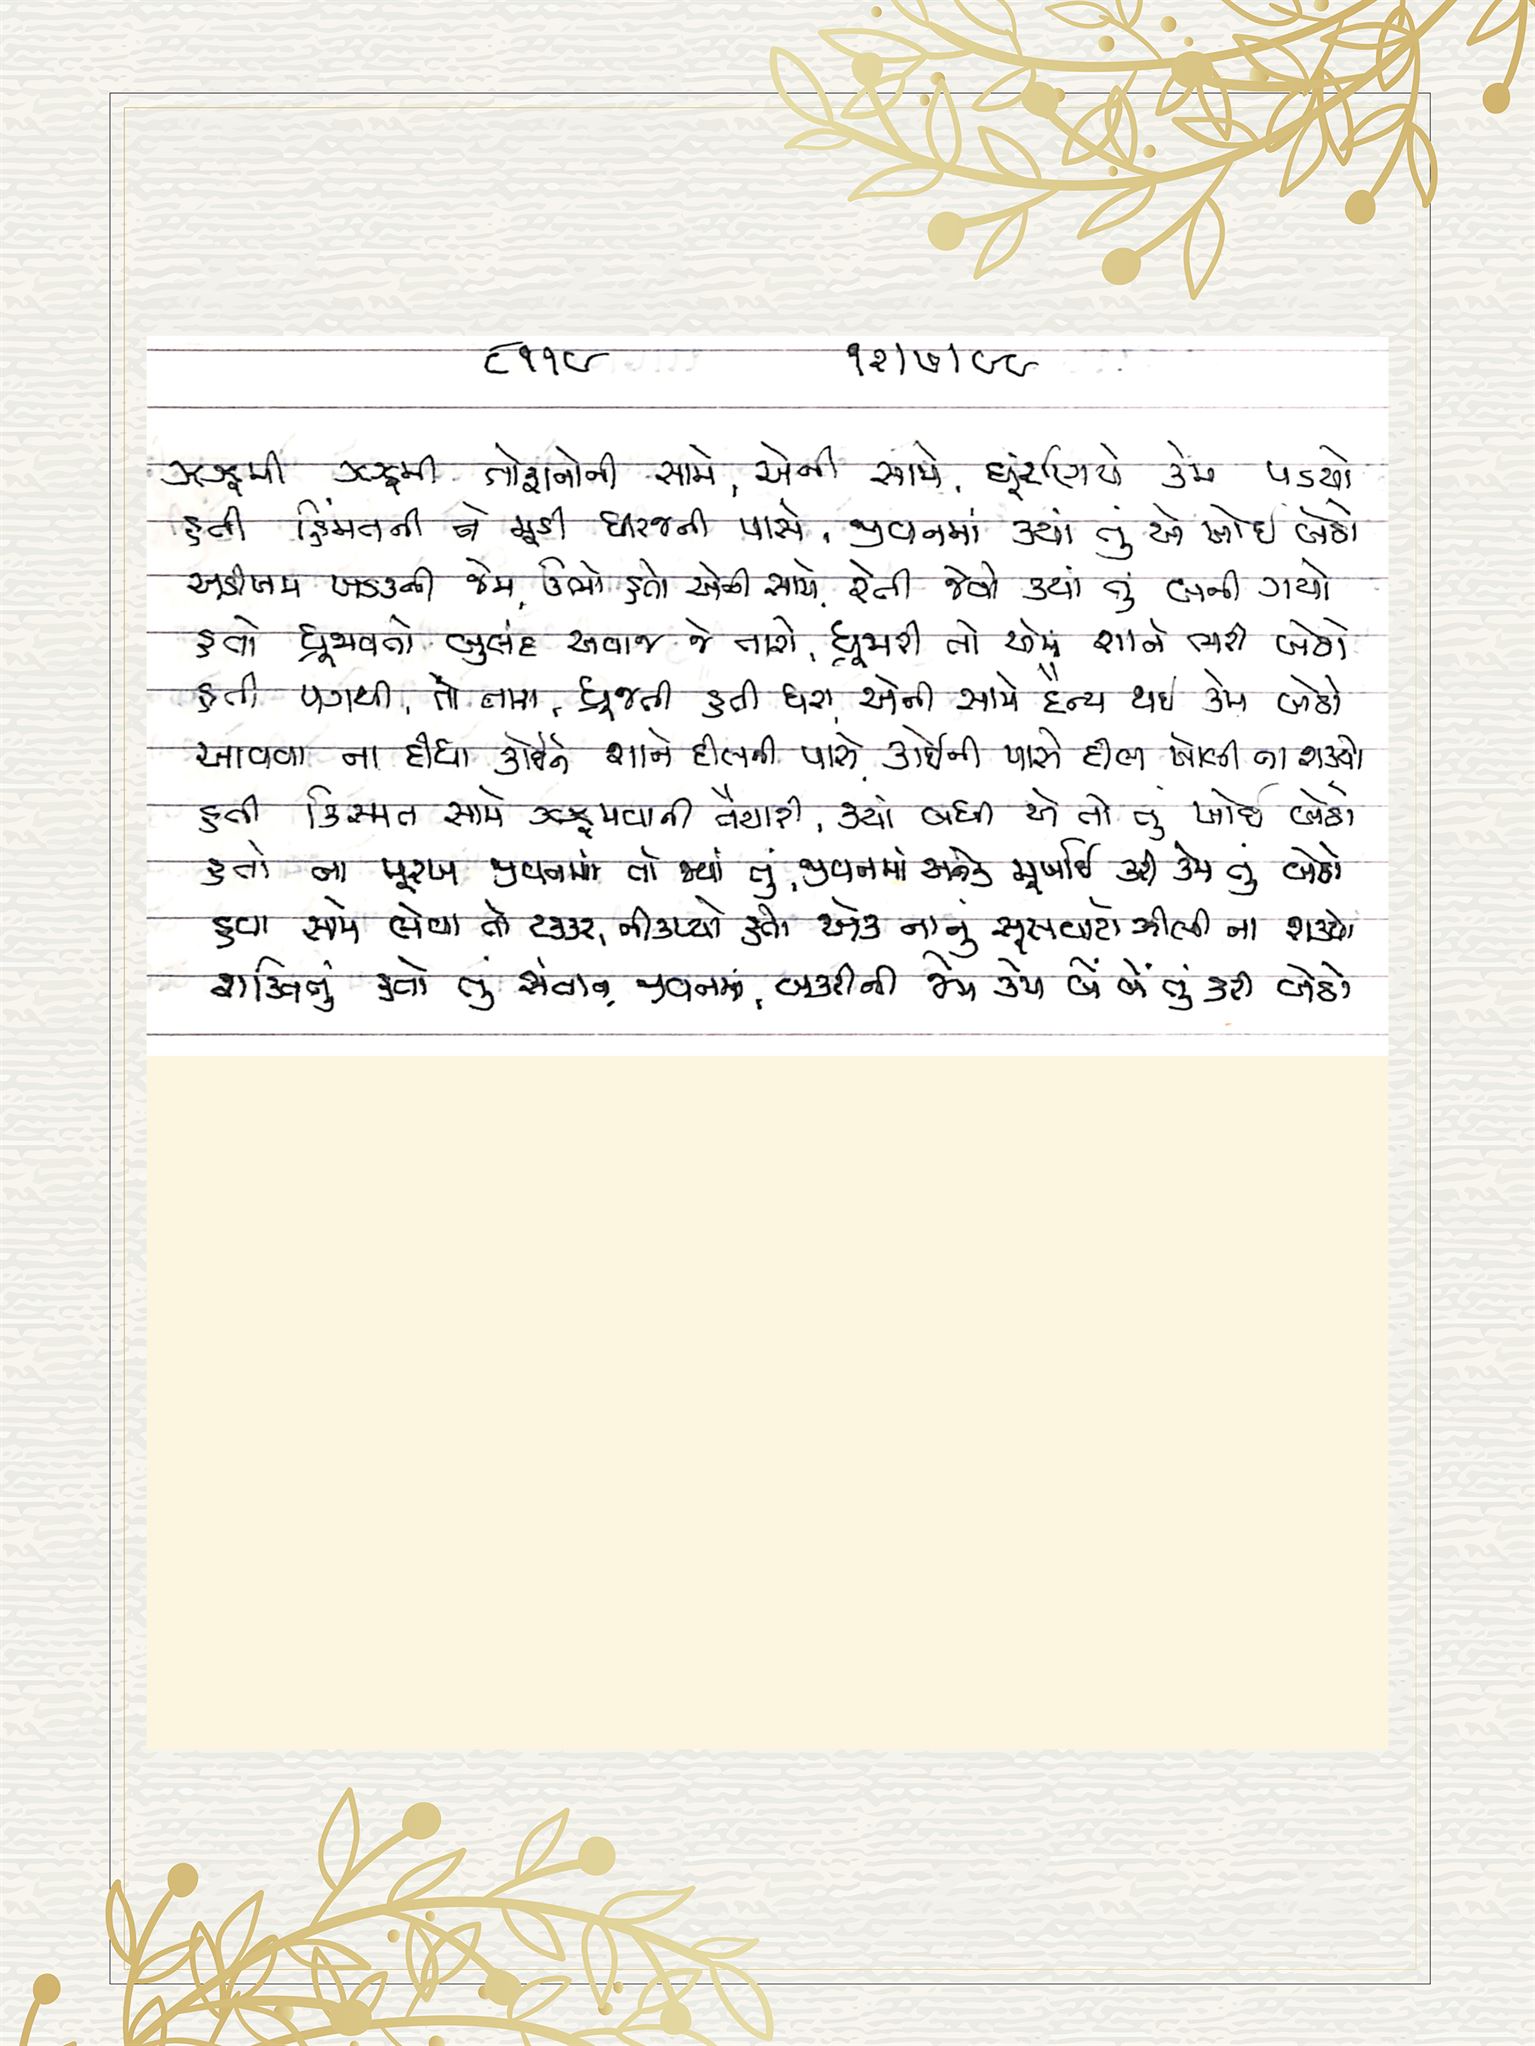 ૮૧૧૯ ૧૨/૭/૯૯
ઝઝૂમી ઝઝૂમી તોફાનોની સામે, એની સામે, ઘૂંટણિયે કેમ પડયો
હતી હિંમતની ને મૂડી ધીરજની પાસે, જીવનમાં ક્યાં તું એ ખોઈ બેઠો
અડીખમ ખડકની જેમ, ઊભો હતો એની સામે, રેતી જેવો ક્યાં તું બની ગયો
હતો ધ્રૂજાવતો બુલંદ અવાજ જે તારો, ધ્રૂજારી તો એમાં શાને ભરી બેઠો
હતી પગથી, તો તારા, ધ્રૂજતી હતી ધરા, એની સામે દૈન્ય થઈ કેમ બેઠો
આવવા ના દીધા કોઈને શાને દીલની પાસે, કોઈની પાસે દીલ ખોલી ના શક્યો
હતી કિસ્મત સામે ઝઝૂમવાની તૈયારી, ક્યાં બધી એ તો તું ખોઈ બેઠો
હતો ના મૂરખ જીવનમાં તો જ્યાં તું, જીવનમાં અનેક મૂર્ખાઈ કરી કેમ તું બેઠો
હવા સામે લેવા તો ટક્કર, નીકળ્યો હતો એક નાનું સૂસવાટો ઝીલી ના શક્યો
શક્તિનું હતો તું સંતાન, જીવનમાં, બકરીની જેમ કેમ બેં બેં તું કરી બેઠો